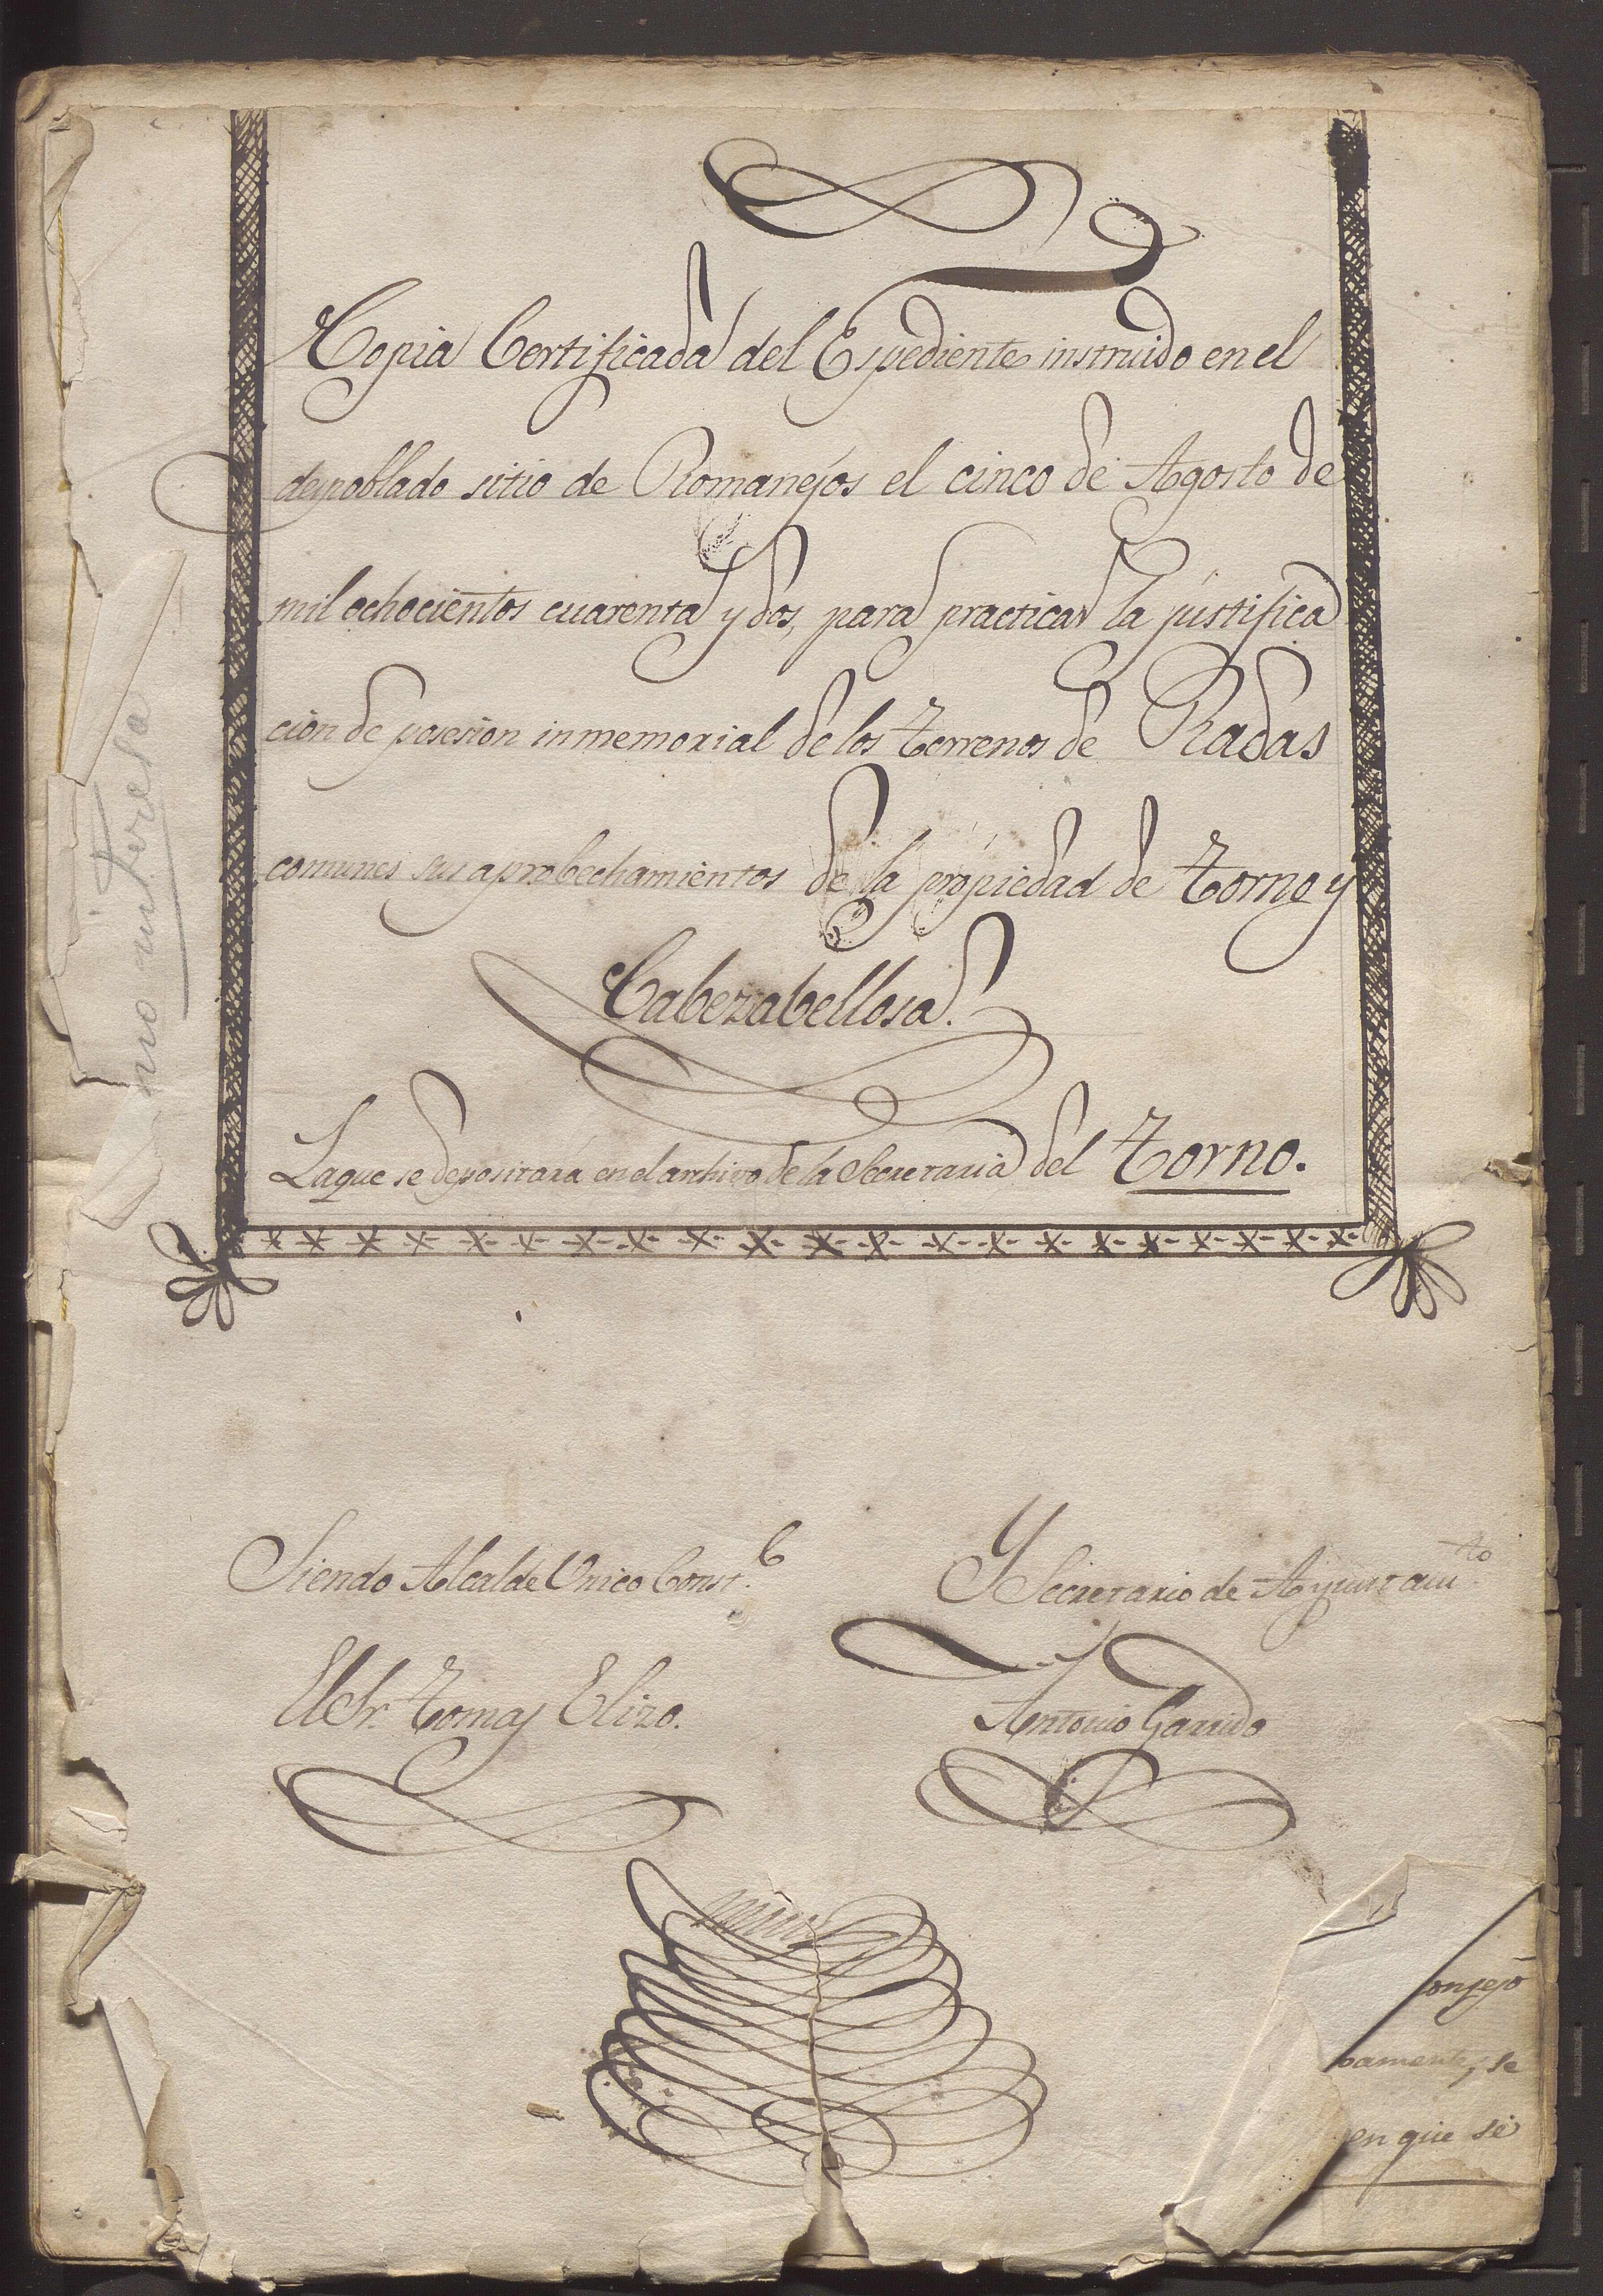 Copia Certificada del Espediente instruido en el
despoblado sitio de Romanejos el cinco de Agosto de
mil ochocientos cuarenta y dos, para practicar la justifica
cion de posesion inmemorial de los terrenos de Radas
comunes sus aprobechamientos de la propiedad de Torno y
Cabezabellosa.
La que se depositará en el archivo de la Secretaria del Torno.
Siendo Alcalde Unico Const.l
Y Secretario de Ayuntam.to
El Sr. Tomas Elizo.
Antonio Garrido
onsejo
bamente, se
en que se